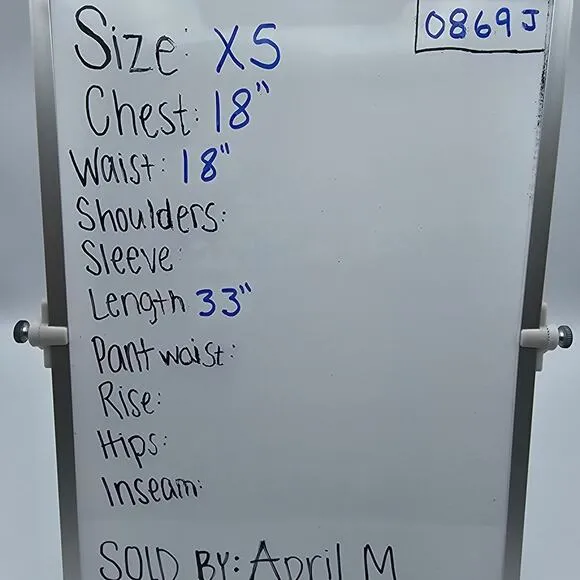 0869J
Size: XS
Chest: 18"
Waist: 18"
Shoulders:
Sleeve:
Length 33"
Pant waist:
Rise:
Hips:
Inseam:
SOLD BY: April M